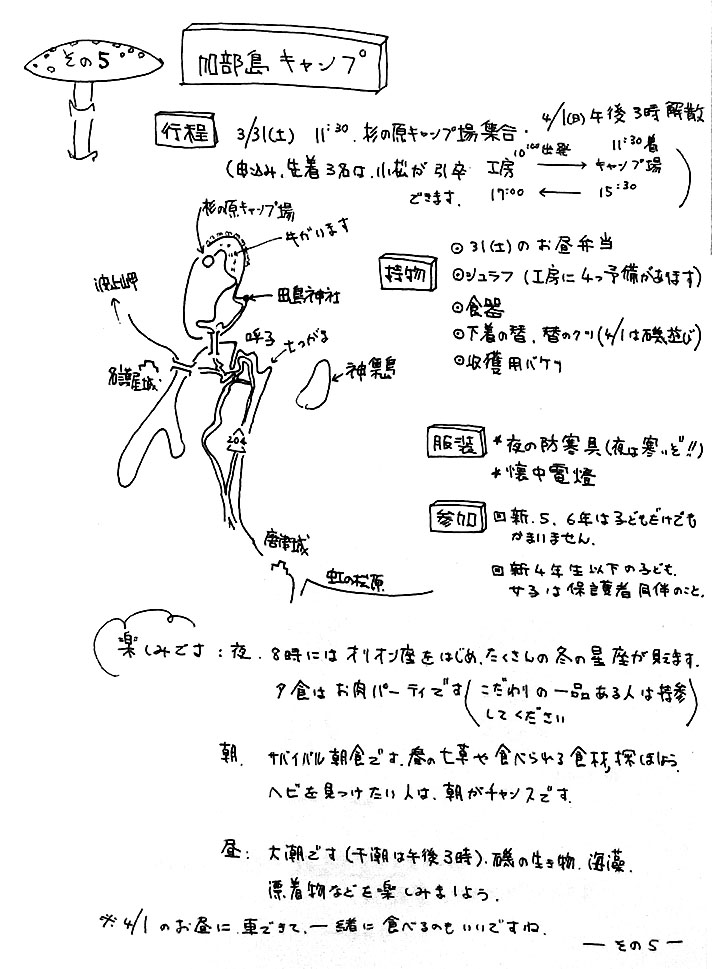 その5
加部島キャンプ
行程 3/31(土) 11:30 杉の原キャンプ場集合・4/1(日)午後3時解散
(申込み、先着3名は、小松が引卒できます。
工房 10:00出発 → 11:30着 キャンプ場
17:00 ← 15:30)
杉の原キャンプ場
牛がいます
波止岬
田島神社
呼子
七つがま
名護屋城
神集島
204
唐津城
虹の松原
持物
⊙31(土)のお昼弁当
⊙シュラフ(工房に4つ予備があります)
⊙食器
⊙下着の替、替のクツ(4/1は磯遊び)
⊙収獲用バケツ
服装
*夜の防寒具(夜は寒いぞ!!)
*懐中電燈
参加
回新.5、6年は子どもだけでも
かまいません。
回新4年生以下の子ども、
サるは保護者同伴のこと。
楽しみです:夜.8時にはオリオン座をはじめ、たくさんの冬の星座が見えます。
夕食はお肉パーティです(こだわりの一品ある人は持参
してください)
朝.サバイバル朝食です.春の七草や食べられる食材,探しましょう.
ヘビを見つけたい人は、朝がチャンスです.
昼:大潮です(干潮は午後3時).磯の生き物、海藻、
漂着物などを楽しみましょう.
※4/1のお昼に、車できて、一緒に食べるのもいいですね.
―その5―